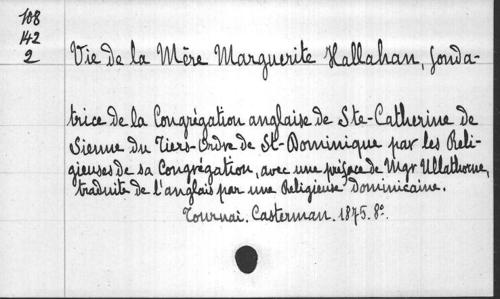 108
142
2
Vie de la Mère Marguerite Hallahan, fonda-
trice de la Congrégation anglaise de Ste-Catherine de
Sienne du Tiers-Ordre de St-Dominique par les Reli-
gieuses de sa Congrégation, avec une préface de Mgr Ullathorne,
traduite de l'anglais par une Religieuse dominicaine.
Tournai. Casterman. 1875. 8º.